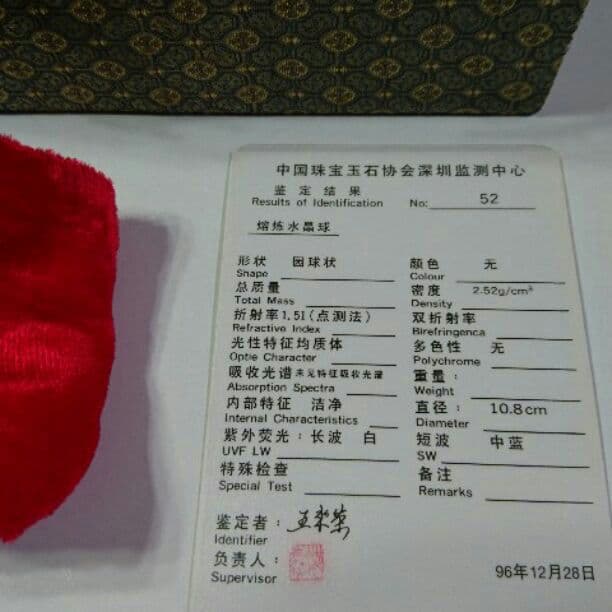 中国珠宝玉石协会深圳监测中心
鉴定结果
Results of Identification No: 52
熔炼水晶球
形状 园球状
Shape
颜色 无
Colour
总质量
Total Mass
密度 2.52g/cm³
Density
折射率1.51(点测法)
Refractive Index
双折射率
Birefringenca
光性特征均质体
Optie Character
多色性 无
Polychrome
吸收光谱 未见特征吸收光谱
Absorption Spectra
重量:
Weight
内部特征 洁净
Internal Characteristics
直径: 10.8cm
Diameter
紫外荧光:长波 白
UVF LW
短波 中蓝
SW
特殊检查
Special Test
备注
Remarks
鉴定者:
Identifier
负责人:
Supervisor
96年12月28日